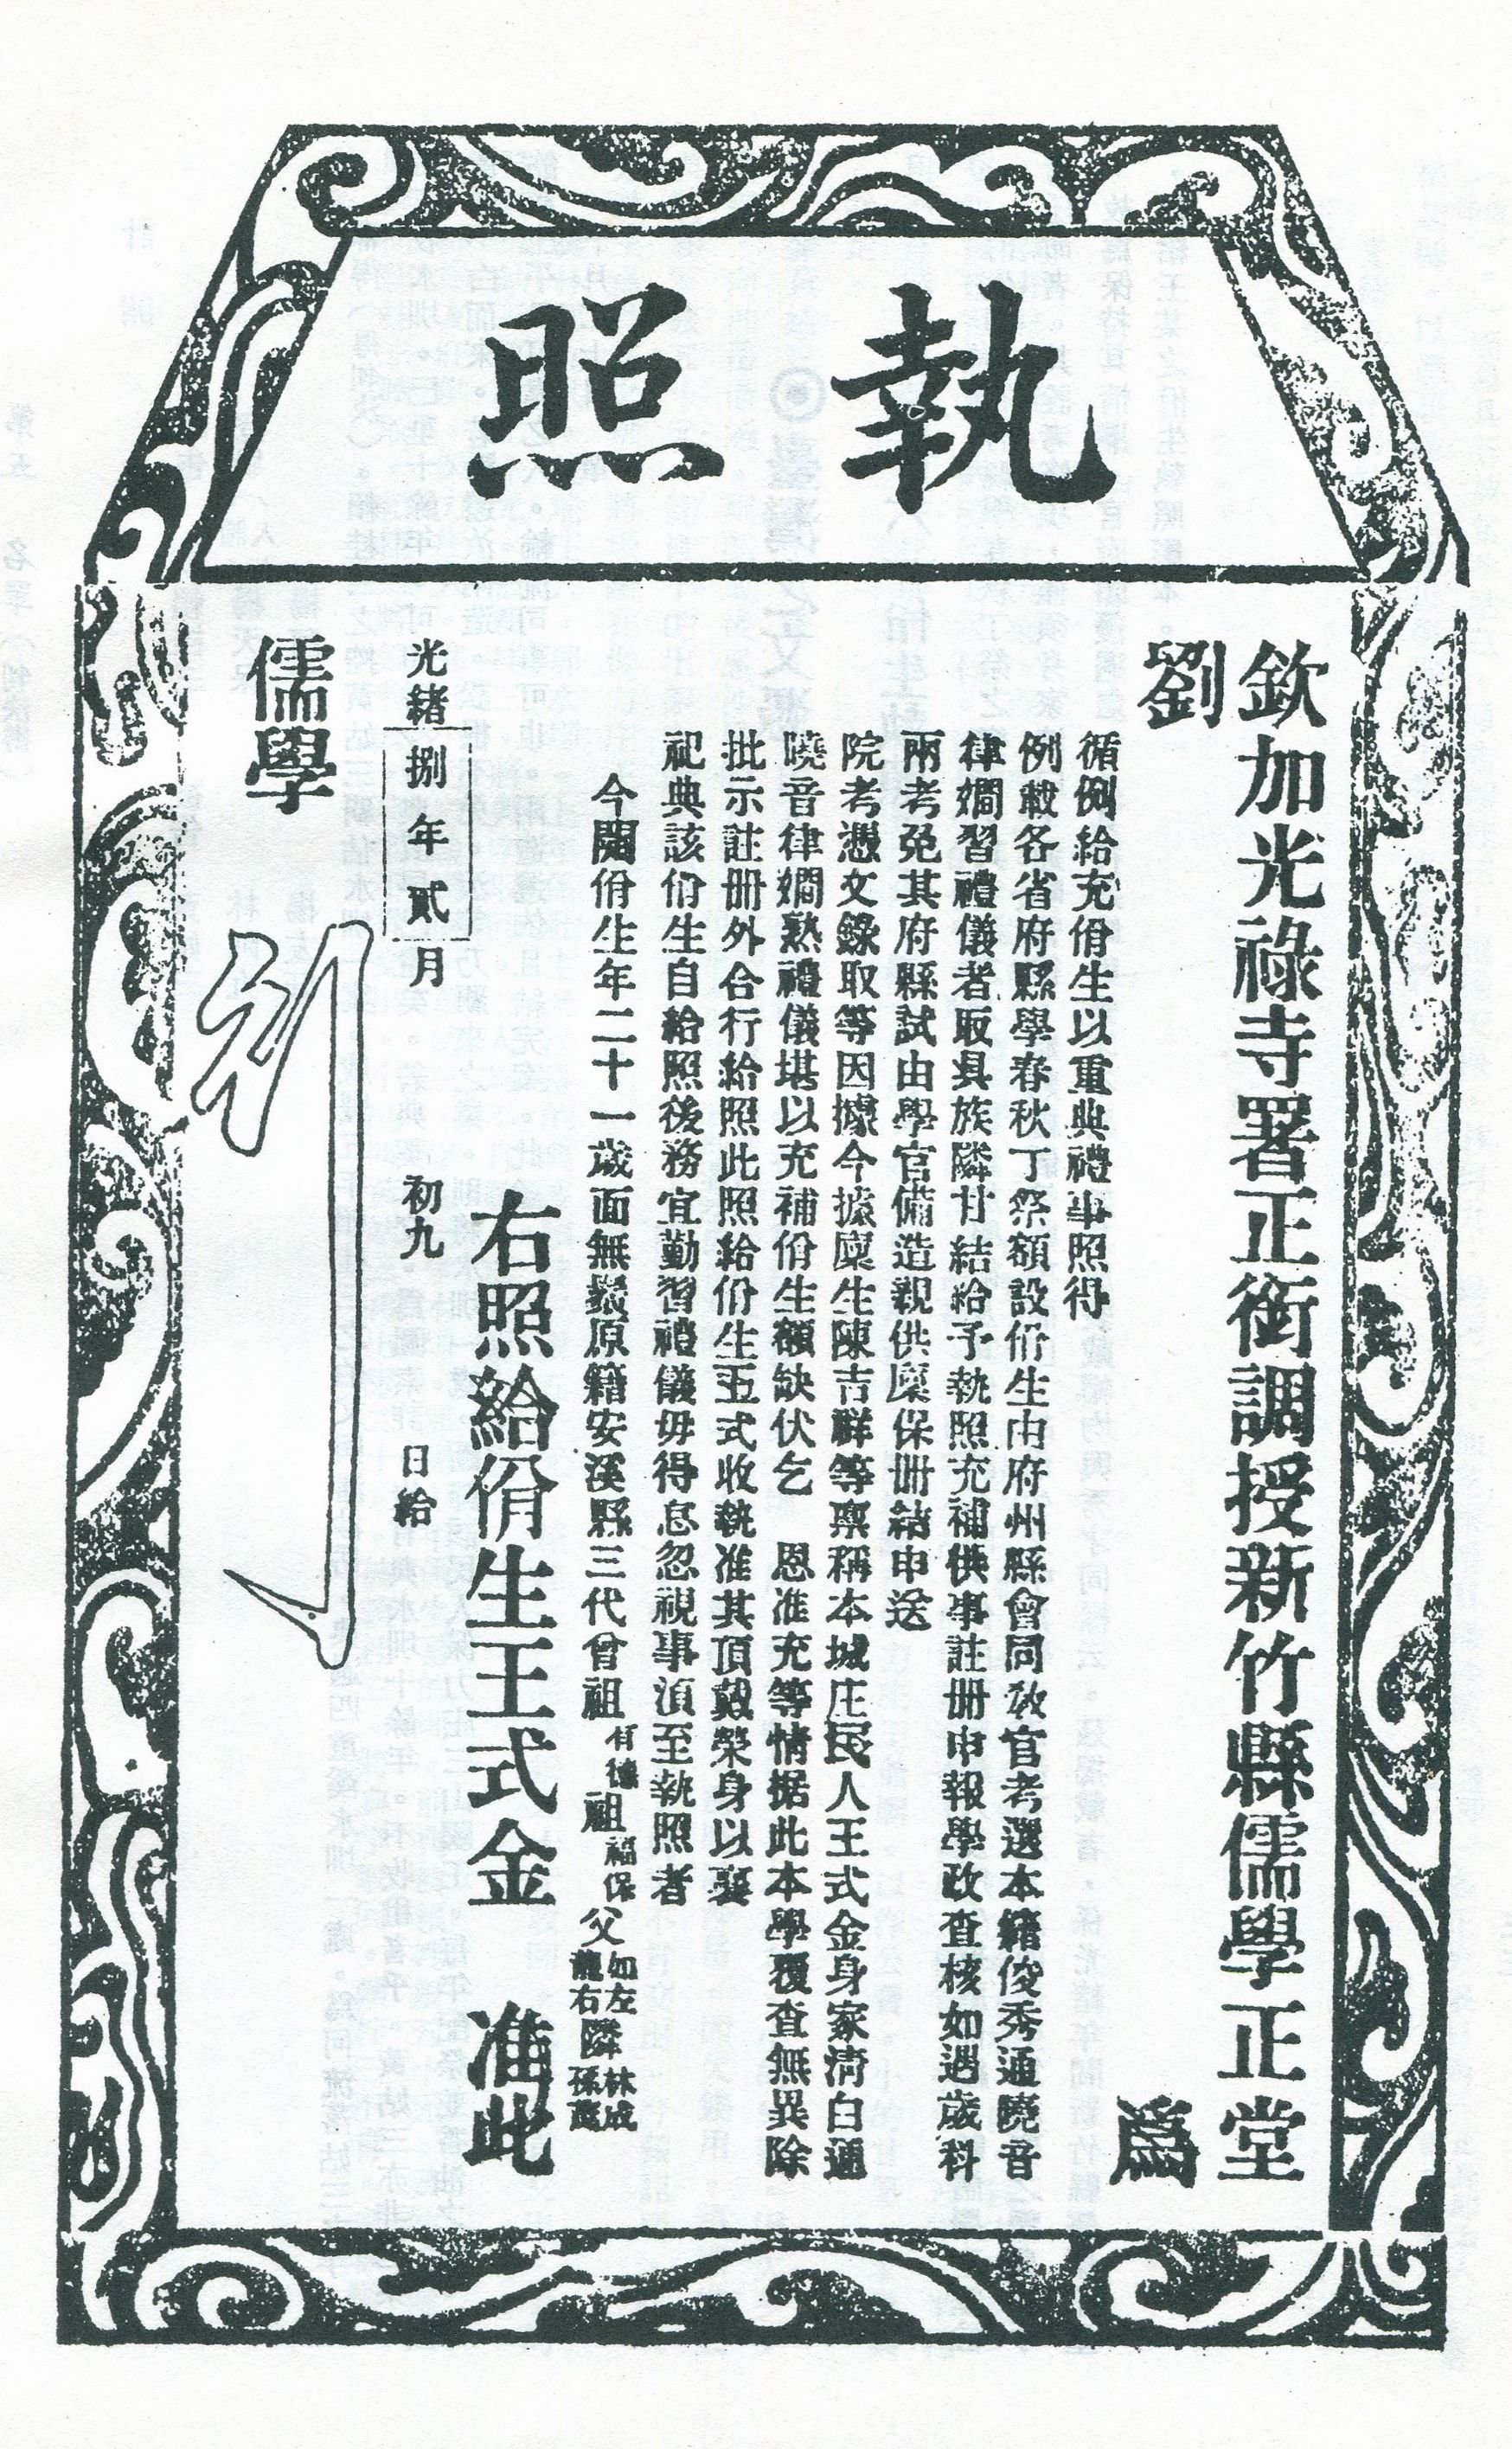 執照
欽加光祿寺署正銜調授新竹縣儒學正堂
劉 爲
循例給充佾生以重典禮事照得
例載各省府縣學春秋丁祭額設佾生由府州縣會同教官考選本籍俊秀通曉音
律嫺習禮儀者取具族隣甘結給予執照充補供事註冊申報學政查核如遇歲科
兩考免其府縣試由學官備造親供廩保冊結申送
院考憑文錄取等因據今據廩生陳吉祥等稟稱本城庄民人王式金身家清白通
曉音律嫺熟禮儀堪以充補佾生額缺伏乞 恩准充等情据此本學覆查無異除
批示註冊外合行給照此照給佾生王式收執准其頂戴榮身以襄
祀典該佾生自給照後務宜勤習禮儀毋得怠忽視事湏至執照者
今開佾生年二十一歲面無鬚原籍安溪縣三代曾祖有德祖福保父如龍左右隣林成孫茂
右照給佾生王式金 准此
光緒捌年貳月 初九 日給
儒學